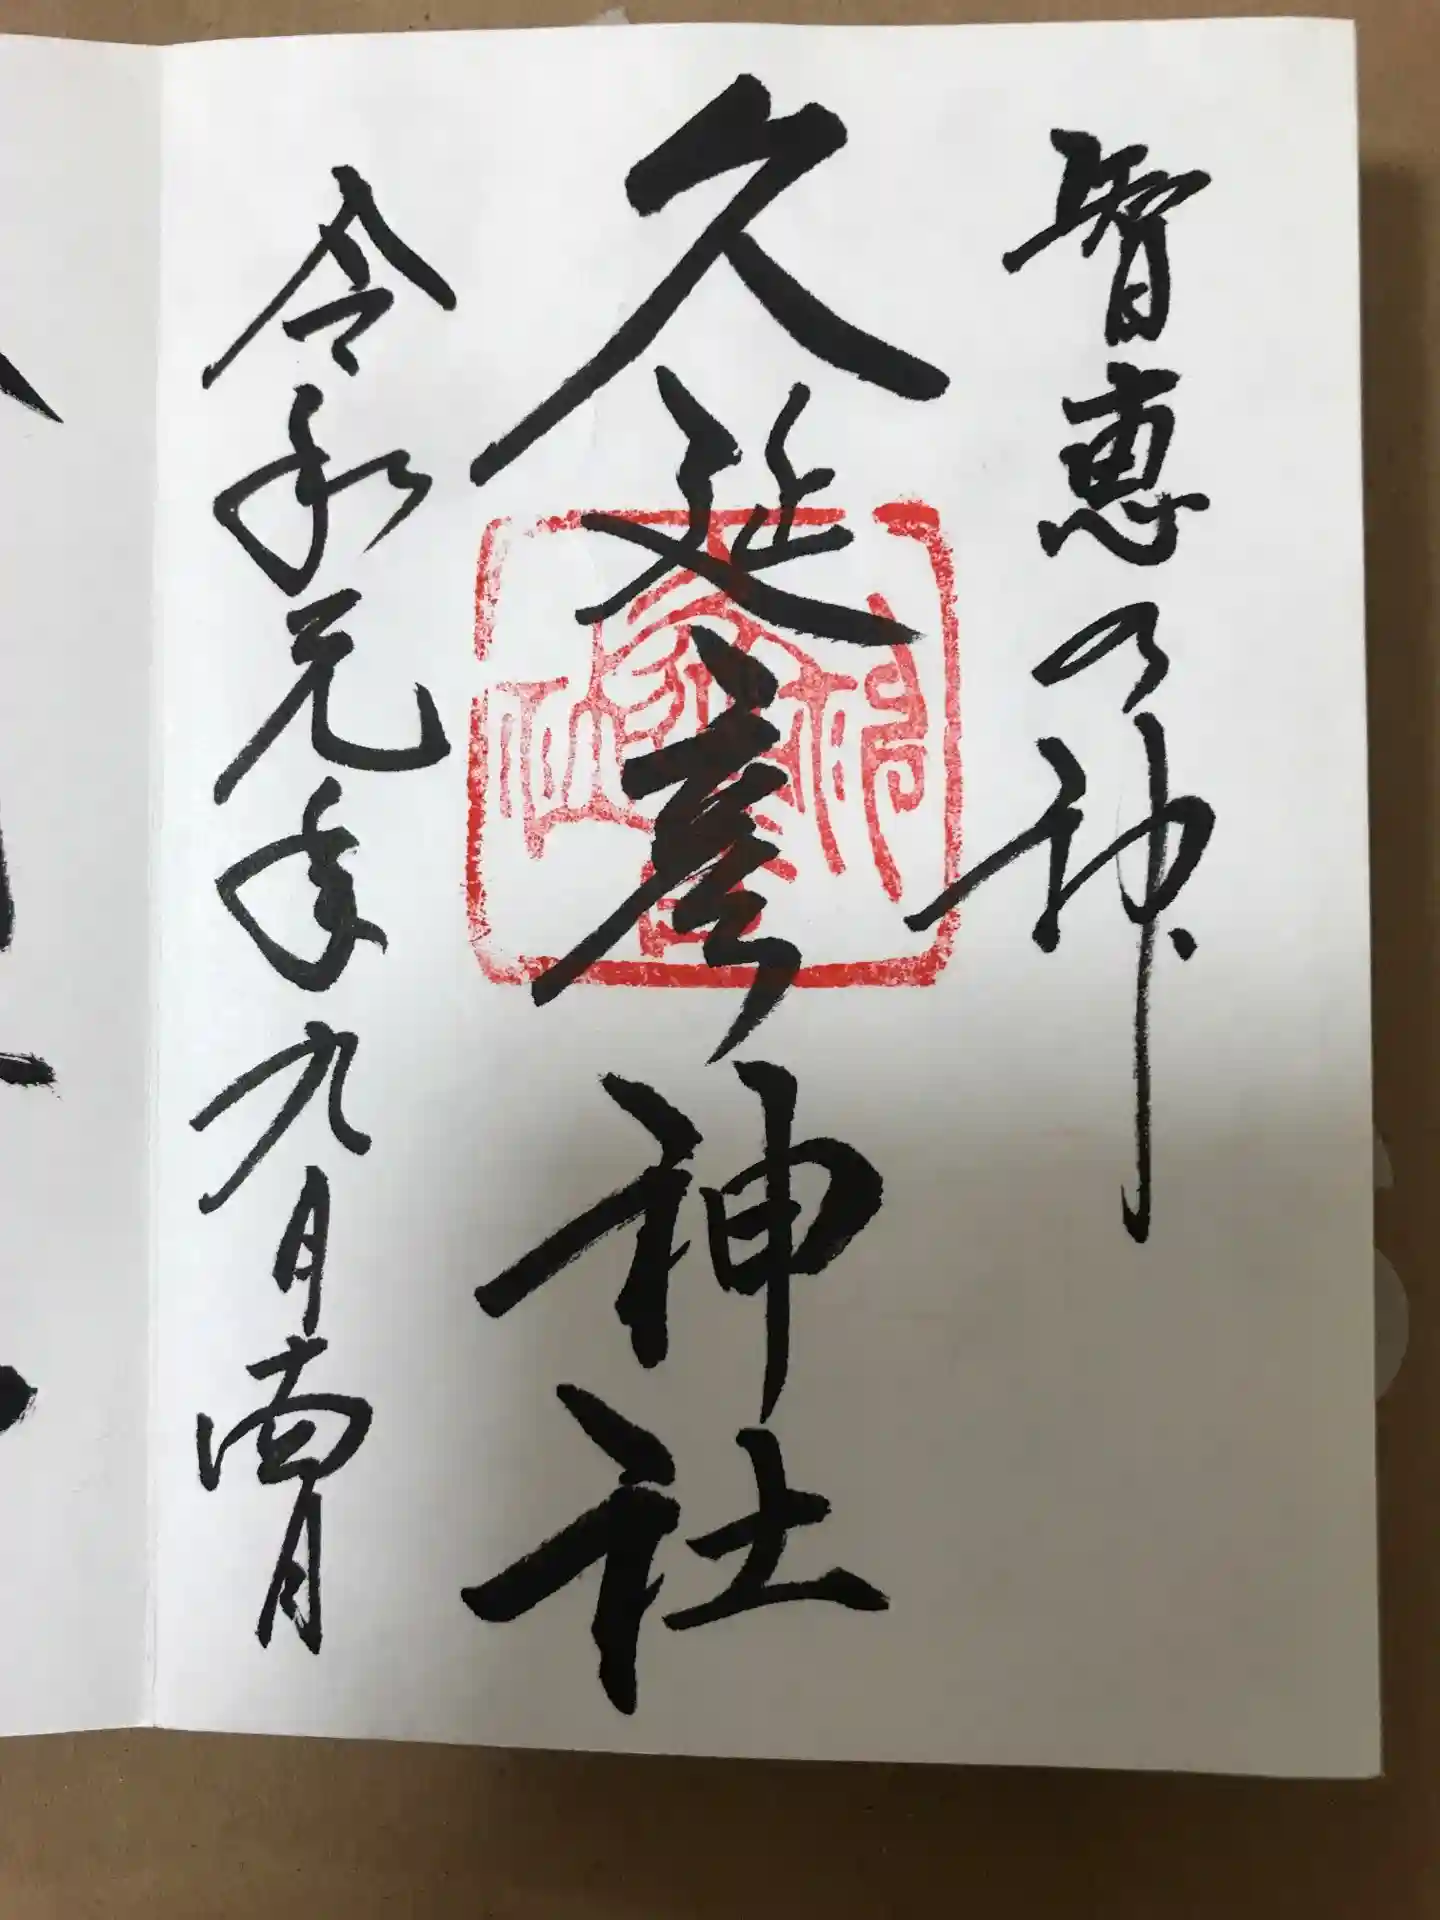 智恵乃神
久延彦神社
令和元年九月